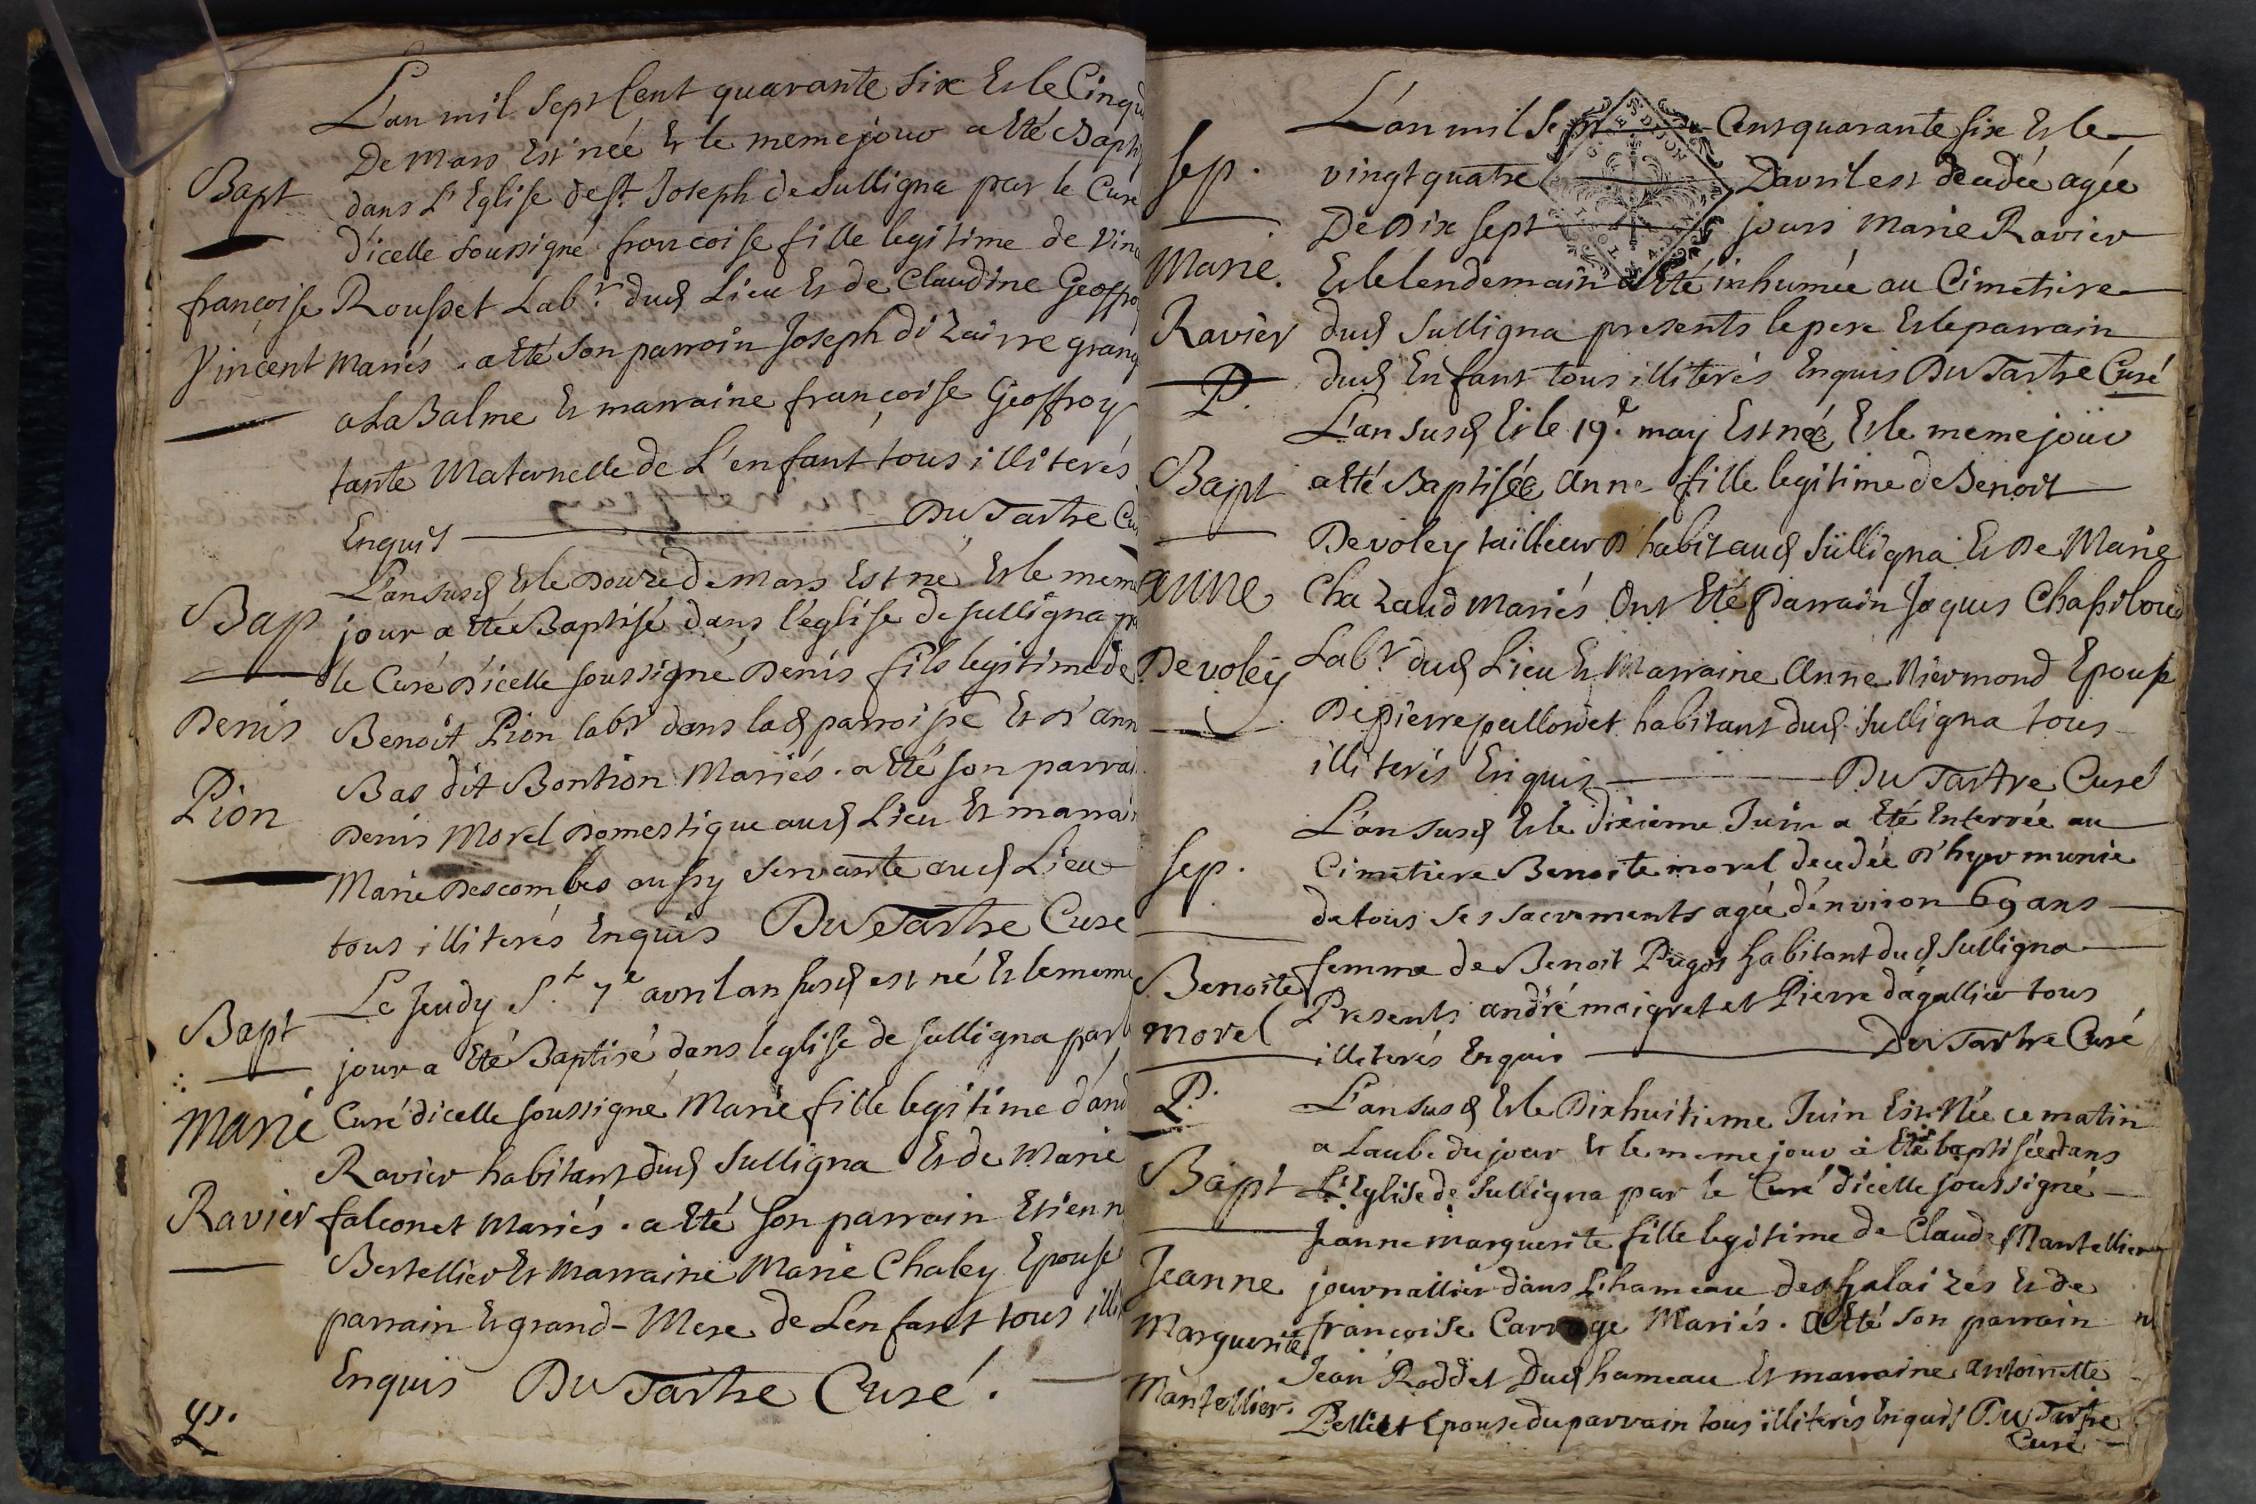 L'an mil sept Cent quarante six Et le Cinqu
De Mars Est née Et le meme jour a Eté Bapt
Bapt
dans L'Eglise de St. Joseph de Sulligna par le Curé
D'icelle soussigné francoise fille legitime de Vin
françoise Rousset Labr. dud Lieu Et de Claudine Geoffro
Vincent Mariés. a Eté son parroin Joseph di Zaire grang
a La Balme Et marraine françoise Geoffroy
tante Maternelle de L'enfant tous illiterés
Enquis Du Tartre Cu
L'an susd Et le Douze de Mars Est né Et le mem
Bap
jour a Eté Baptisé dans l'église de Sulligna p
le Curé D'icelle soussigné Denis fils legitime de
Denis
Benoit Pion labr dans lad parroisse Et D'ann
Bas dit Bontion Mariés. a Eté son parrai
Pion
Denis Morel Domestique aud Lieu Et marrai
Marie Descombes aussy servante aud Lieu
tous illiterés Enquis Du Tartre Curé
Le Jeudy St. 7e avril an susd est né Et le meme
Bapt
jour a Eté Baptisé dans leglise de Sulligna par l
Marie Curé dicelle soussigné Marie fille legitime d'and
Ravier habitant dud Sulligna Et de Marie
Ravier falconet Mariés. a Eté son parrain Etienn
Bertellier Et Marraine Marie Chaley Epouse
parrain Et grand-Mere de L'enfant tous illi
Enquis Du Tartre Curé.
P.
L'an mil Sept Cent quarante six Et le
Sep.
vingt quatre D'avril est decedée agée
De Dix sept jours Marie Ravier
Marie.
Et le lendemain a Eté inhumée au Cimetiere
Ravier
dud Sulligna presents le pere Et le parrain
dud Enfant tous illiterés Enquis Du Tartre Curé
P.
L'an susd Et le 19e. may Est née, Et le meme jour
Bapt
a Eté Baptisée Anne fille legitime de Benoit
Devoley tailleur D'habit aud Sulligna Et De Marie
anne
Chazaud Mariés Ont Eté Parrain Jaques Chassibou
Devoley
Labr dud Lieu Et Marraine Anne Niermond Epouse
De pierre pallordet habitant dud Sulligna tous
illiterés Enquis Du Tartre Curé
L'an susd Et le Dixieme Juin a Eté Enterrée au
Sep.
Cimetiere Benoite morel decedée D'hyer munie
de tous ses sacrements agée d'environ 69 ans
femme de Benoit Pugos habitant dud Sulligna
Benoite
Presents andré maigret et Pierre dagallier tous
Morel
illiterés Enquis Du Tartre Curé
P.
L'an susd Et le Dixhuitieme Juin Est Née ce matin
a Laube du jour Et le meme jour a Eté baptisée dans
Bapt
L'Eglise de Sulligna par le Curé dicelle soussigné
Jeanne marguerite fille legitime de Claude Mantellier
Jeanne
journallier dans L'hameau des halaizes Et de
Marguerite
francoise Carrage Mariés. a Eté son parrain
Jean Roddet Dud hameau Et marraine antoinette
Mantellier.
Pelliet Epouse du parrain tous illiterés Enquis Du Tartre
Curé